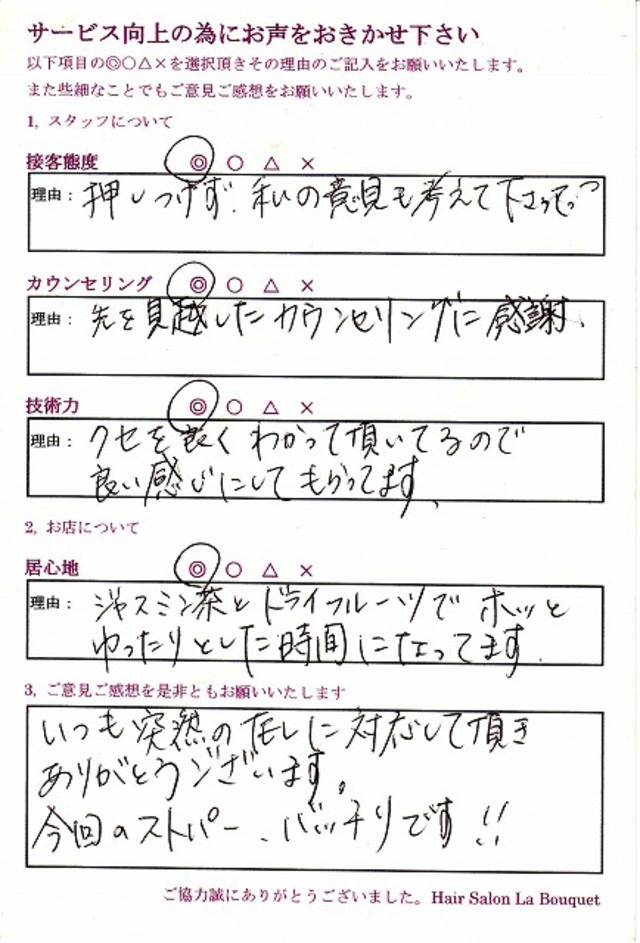 サービス向上の為にお声をおきかせ下さい
以下項目の◎○△×を選択頂きその理由のご記入をお願いいたします。
また些細なことでもご意見ご感想をお願いいたします。
1, スタッフについて
接客態度 ◎ ○ △ ×
理由： 押しつけず、私の意見も考えて下さってっ
カウンセリング ◎ ○ △ ×
理由： 先を見越したカウンセリングに感謝、
技術力 ◎ ○ △ ×
理由： クセを良くわかって頂いてるので
良い感じにしてもらってます、
2, お店について
居心地 ◎ ○ △ ×
理由： ジャスミン茶とドライフルーツでホッと
ゆったりとした時間になってます.
3, ご意見ご感想を是非ともお願いいたします
いつも突然の に対応して頂き
ありがとうございます。
今回のストパー、バッチリです!!
ご協力誠にありがとうございました。Hair Salon La Bouquet